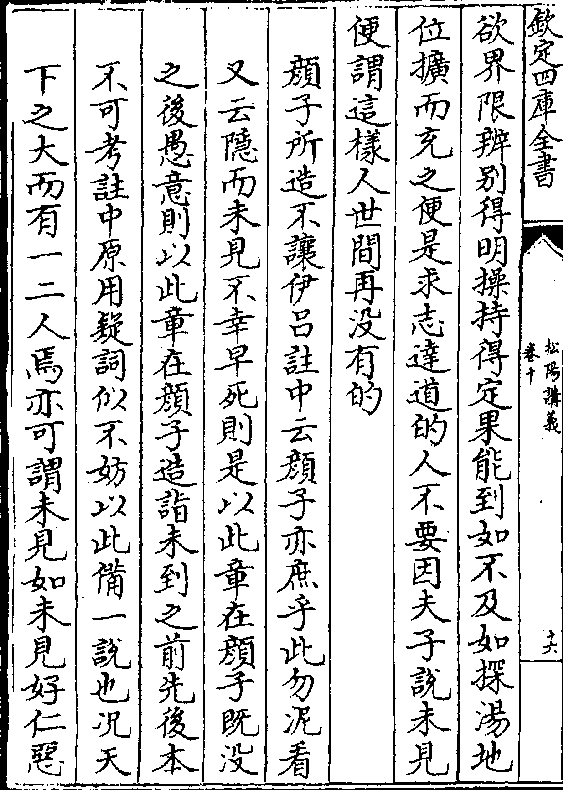 欽定四庫全書
松陽講義
卷十
十六
欲界限辨别得明操持得定果能到如不及如探湯地
位擴而充之便是求志達道的人不要因夫子説未見
便謂這樣人世間再没有的
顔子所造不讓伊吕註中云顔子亦庶乎此勿泥看
又云隱而未見不幸早死則是以此章在顔子既没
之後愚意則以此章在顔子造詣未到之前先後本
不可考註中原用疑詞似不妨以此備一説也况天
下之大而有一二人焉亦可謂未見如未見好仁惡